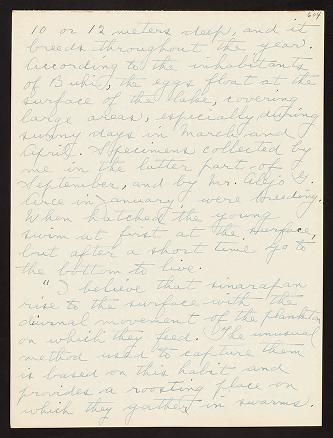 604
10 or 12 meters deep, and it
breeds throughout the year.
According to the inhabitants
of Buhi, the eggs float at the
surface of the lake, covering
large areas, especially during
sunny days in March and
April. Specimens collected by
me in the latter part of
September, and by Mr. Alejo G.
Arce in January were breeding.
When hatched the young
swim at first at the surface,
but after a short time go to
the bottom to live.
"I believe that sinarapan
rise to the surface with the
diurnal movement of the plankton
on which they feed. The unusual
method used to capture them
is based on this habit and
provides a roosting place on
which they gather in swarms.